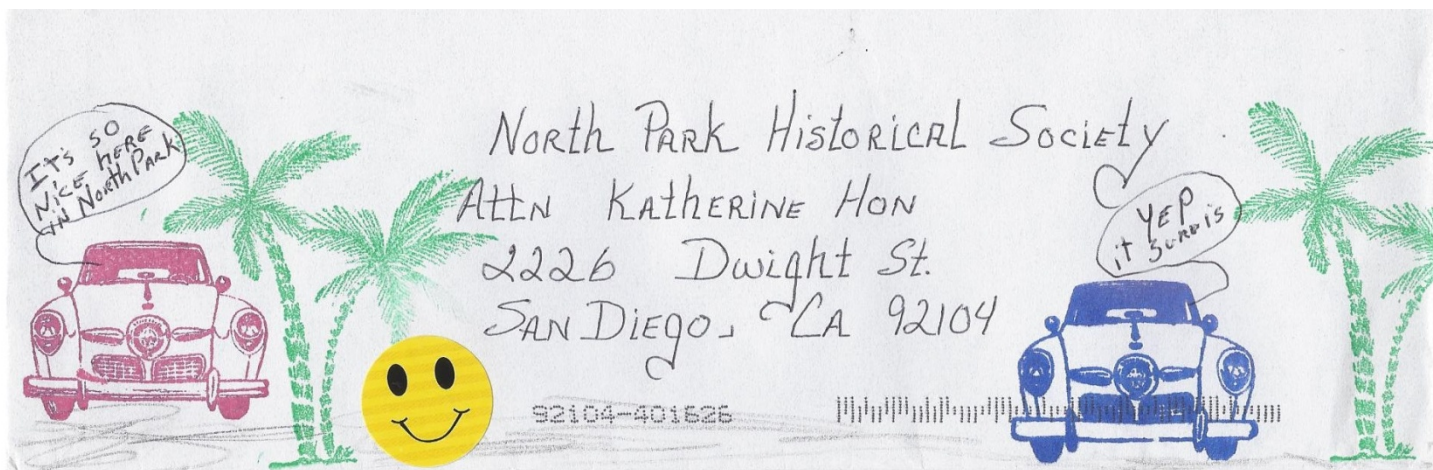 IT'S SO
NICE HERE
IN NORTH PARK
North Park Historical Society
Attn Katherine Hon
2226 Dwight St.
San Diego, CA 92104
YEP
it sure is
92104-401626